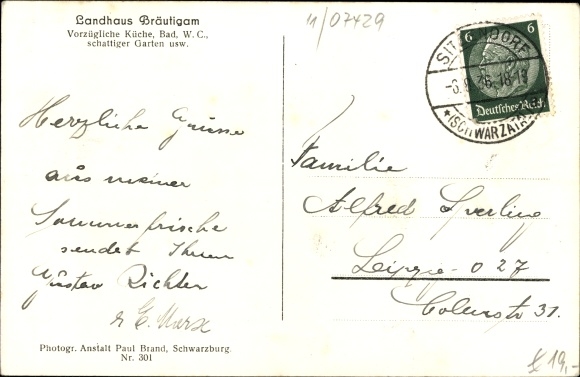 Landhaus Bräutigam
Vorzügliche Küche, Bad, W. C.,
schattiger Garten usw.
Herzliche Grüsse
aus meiner
Sommerfrische
sendet Ihnen
Gustav Richter
E. Marx
Photogr. Anstalt Paul Brand, Schwarzburg.
Nr. 301
11/07429
6 6
Deutsches Reich
SITZENDORF
(SCHWARZATAL)
Familie
Alfred Sperling
Leipzig-O 27
Colerstr 31.
19,-